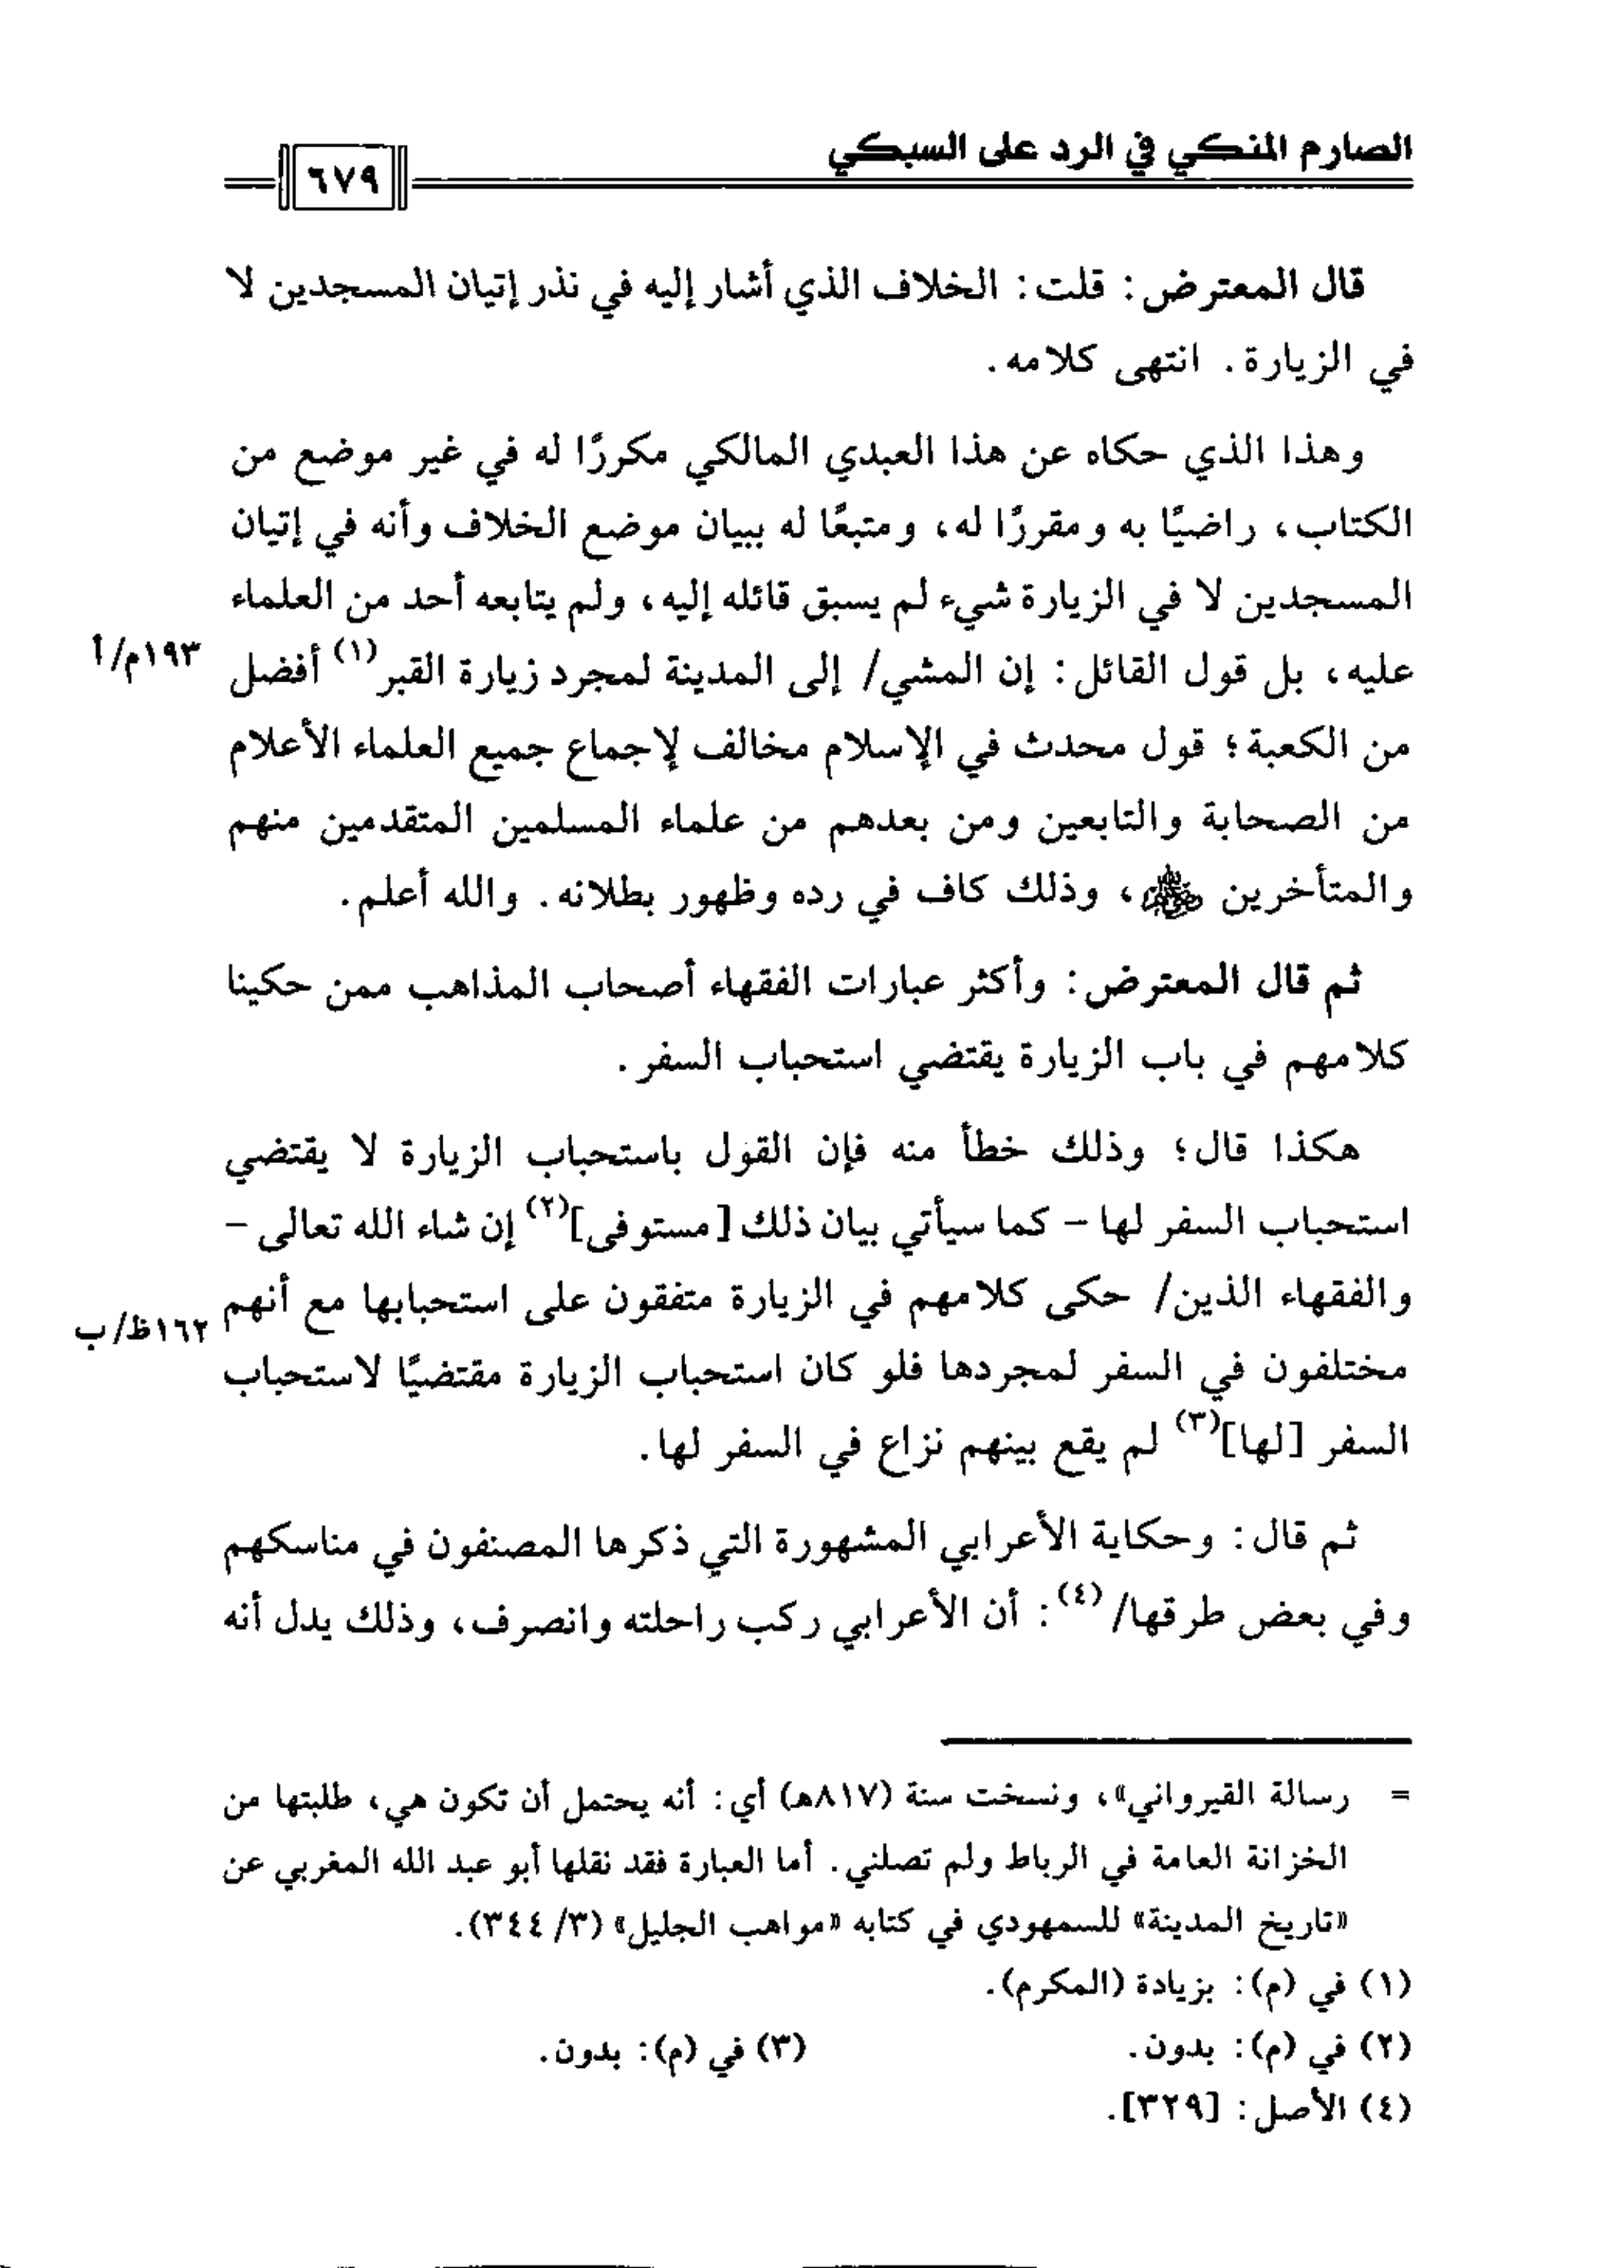 الصارم المنكي في الرد على السبكي
٦٧٩
قال المعترض: قلت: الخلاف الذي أشار إليه في نذر إتيان المسجدين لا
في الزيارة. انتهى كلامه.
وهذا الذي حكاه عن هذا العبدي المالكي مكررًا له في غير موضع من
الكتاب، راضيًا به ومقررًا له، ومتبعًا له ببيان موضع الخلاف وأنه في إتيان
المسجدين لا في الزيارة شيء لم يسبق قائله إليه، ولم يتابعه أحد من العلماء
عليه، بل قول القائل: إن المشي/ إلى المدينة لمجرد زيارة القبر(١) أفضل
١٩٣م/أ
من الكعبة؛ قول محدث في الإسلام مخالف لإجماع جميع العلماء الأعلام
من الصحابة والتابعين ومن بعدهم من علماء المسلمين المتقدمين منهم
والمتأخرين ﷺ، وذلك كاف في رده وظهور بطلانه. والله أعلم.
ثم قال المعترض: وأكثر عبارات الفقهاء أصحاب المذاهب ممن حكينا
كلامهم في باب الزيارة يقتضي استحباب السفر.
هكذا قال؛ وذلك خطأ منه فإن القول باستحباب الزيارة لا يقتضي
استحباب السفر لها - كما سيأتي بيان ذلك [مستوفى](٢) إن شاء الله تعالى -
والفقهاء الذين/ حكى كلامهم في الزيارة متفقون على استحبابها مع أنهم
١٦٢ظ/ب
مختلفون في السفر لمجردها فلو كان استحباب الزيارة مقتضيًا لاستحباب
السفر [لها](٣) لم يقع بينهم نزاع في السفر لها.
ثم قال: وحكاية الأعرابي المشهورة التي ذكرها المصنفون في مناسكهم
وفي بعض طرقها/(٤): أن الأعرابي ركب راحلته وانصرف، وذلك يدل أنه
= رسالة القيرواني»، ونسخت سنة (٨١٧هـ) أي: أنه يحتمل أن تكون هي، طلبتها من
الخزانة العامة في الرباط ولم تصلني. أما العبارة فقد نقلها أبو عبد الله المغربي عن
«تاريخ المدينة» للسمهودي في كتابه «مواهب الجليل» (٣/ ٣٤٤).
(١) في (م): بزيادة (المكرم).
(٢) في (م): بدون. (٣) في (م): بدون.
(٤) الأصل: [٣٢٩].